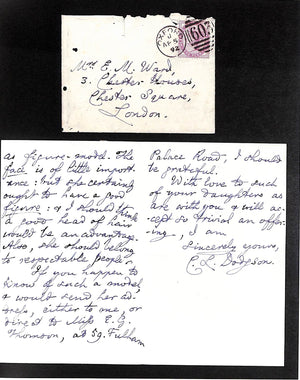 OXFORD
AP 5
92
603
Mrs E. M. Ward,
3. Chester Houses,
Chester Square,
London.
as figure-model. The
face is of little import-
ance: but she certainly
ought to have a good
figure: & I should think
a good head of hair
would be an advantage.
Also, she should belong
to respectable people.
If you happen to
know of such a model,
& would send her ad-
dress, either to me, or
direct to Miss E. G.
Thomson, at 59. Fulham
Palace Road, I should
be grateful.
With love to such
of your daughters as
are with you & will ac-
cept so trivial an offer-
ing, I am
Sincerely yours,
C. L. Dodgson.